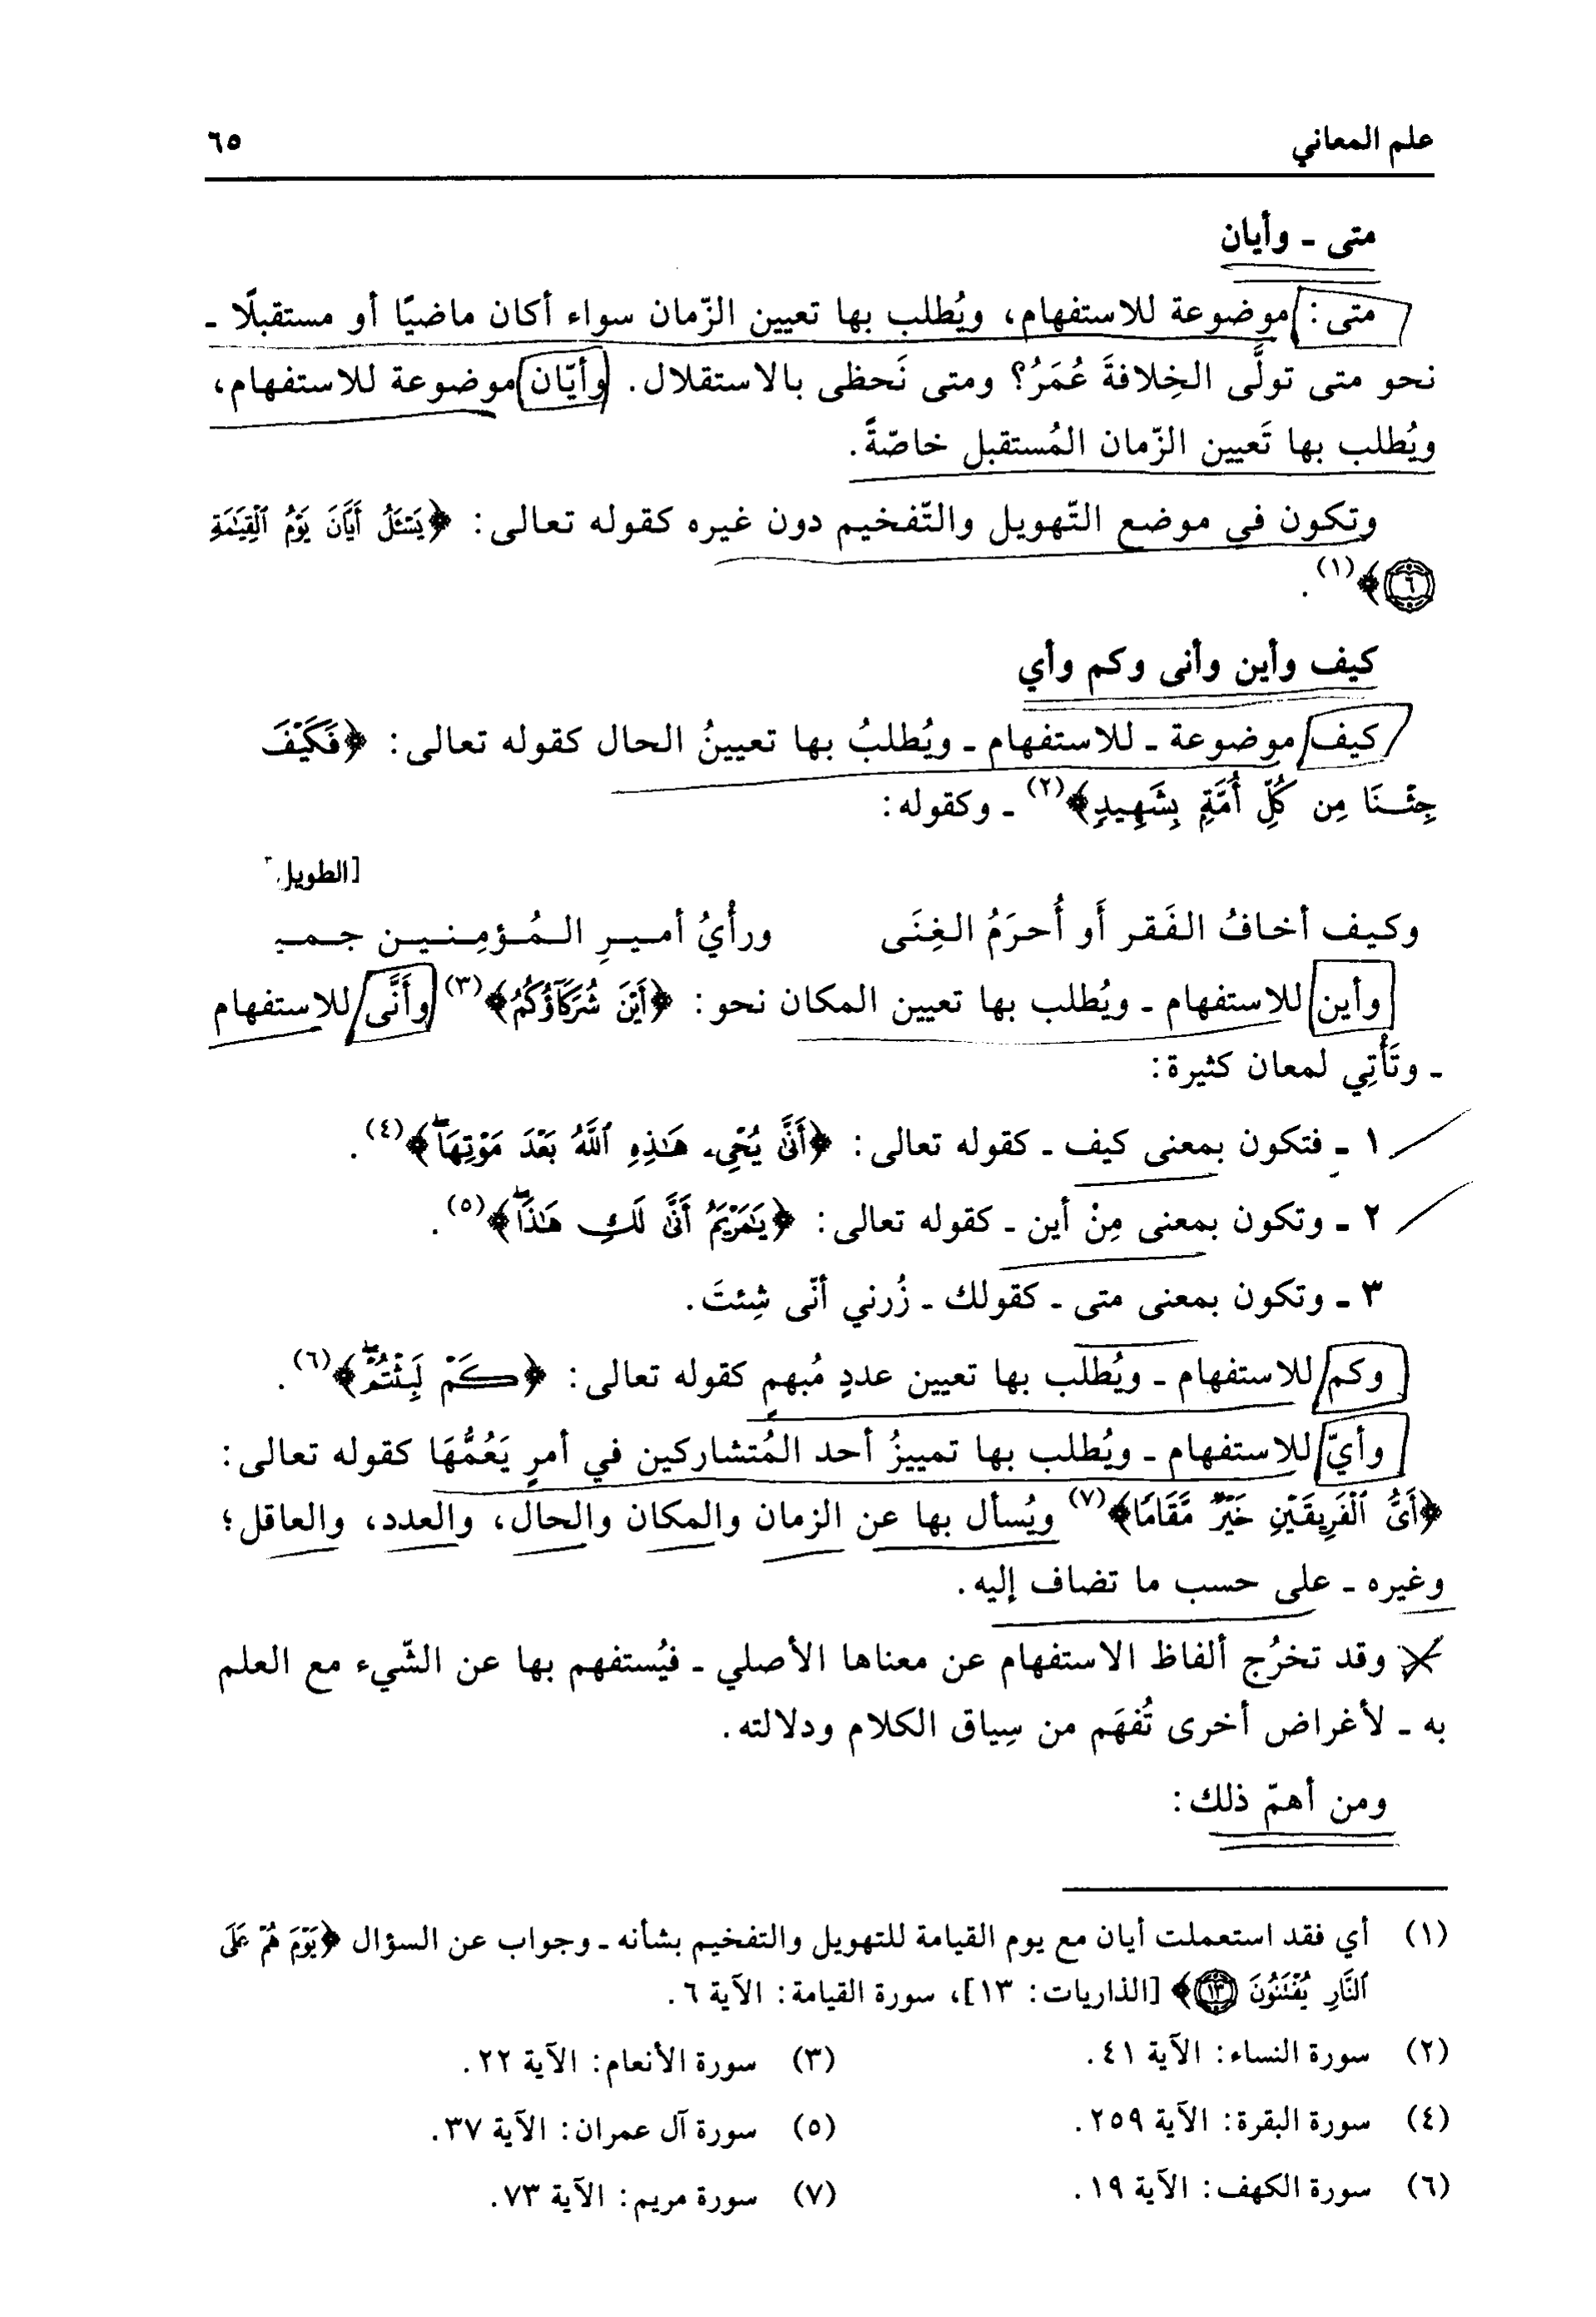 علم المعاني ٦٥
متى ـ وأيان
متى: موضوعة للاستفهام، ويُطلب بها تعيين الزّمان سواء أكان ماضيًا أو مستقبلًا ـ
نحو متى تولَّى الخِلافةَ عُمَرُ؟ ومتى نَحظى بالاستقلال. وأيّان موضوعة للاستفهام،
ويُطلب بها تَعيين الزّمان المُستقبل خاصّةً.
وتكون في موضع التّهويل والتّفخيم دون غيره كقوله تعالى: ﴿يَسْـَٔلُ أَيَّانَ يَوْمُ ٱلْقِيَـٰمَةِ
٦﴾(١).
كيف وأين وأنى وكم وأي
كيف موضوعة ـ للاستفهام ـ ويُطلبُ بها تعيينُ الحال كقوله تعالى: ﴿فَكَيْفَ
جِئْـنَا مِن كُلِّ أُمَّةٍ بِشَهِيدٍ﴾(٢) ـ وكقوله:
[الطويل]
وكيف أخافُ الفَقر أَو أُحرَمُ الغِنَى ورأْيُ أميرِ المُؤمِنين جميـ
وأين للاستفهام ـ ويُطلب بها تعيين المكان نحو: ﴿أَيْنَ شُرَكَآؤُكُمُ﴾(٣) وأَنَّى للاستفهام
ـ وتَأْتِي لمعان كثيرة:
١ ـ فتكون بمعنى كيف ـ كقوله تعالى: ﴿أَنَّىٰ يُحْىِۦ هَـٰذِهِ ٱللَّهُ بَعْدَ مَوْتِهَاۖ﴾(٤).
٢ ـ وتكون بمعنى مِنْ أين ـ كقوله تعالى: ﴿يَـٰمَرْيَمُ أَنَّىٰ لَكِ هَـٰذَاۖ﴾(٥).
٣ ـ وتكون بمعنى متى ـ كقولك ـ زُرني أنّى شِئتَ.
وكم للاستفهام ـ ويُطلب بها تعيين عددٍ مُبهمٍ كقوله تعالى: ﴿كَمْ لَبِثْتُمْۖ﴾(٦).
وأيّ للاستفهام ـ ويُطلب بها تمييزُ أحد المُتشاركين في أمرٍ يَعُمُّهَا كقوله تعالى:
﴿أَىُّ ٱلْفَرِيقَيْنِ خَيْرٌ مَّقَامًا﴾(٧) ويُسأل بها عن الزمان والمكان والحال، والعدد، والعاقل؛
وغيره ـ على حسب ما تضاف إليه.
وقد تخرُج ألفاظ الاستفهام عن معناها الأصلي ـ فيُستفهم بها عن الشّيء مع العلم
به ـ لأغراض أخرى تُفهَم من سِياق الكلام ودلالته.
ومن أهمّ ذلك:
(١) أي فقد استعملت أيان مع يوم القيامة للتهويل والتفخيم بشأنه ـ وجواب عن السؤال ﴿يَوْمَ هُمْ عَلَى
ٱلنَّارِ يُفْتَنُونَ ١٣﴾ [الذاريات: ١٣]، سورة القيامة: الآية ٦.
(٢) سورة النساء: الآية ٤١. (٣) سورة الأنعام: الآية ٢٢.
(٤) سورة البقرة: الآية ٢٥٩. (٥) سورة آل عمران: الآية ٣٧.
(٦) سورة الكهف: الآية ١٩. (٧) سورة مريم: الآية ٧٣.